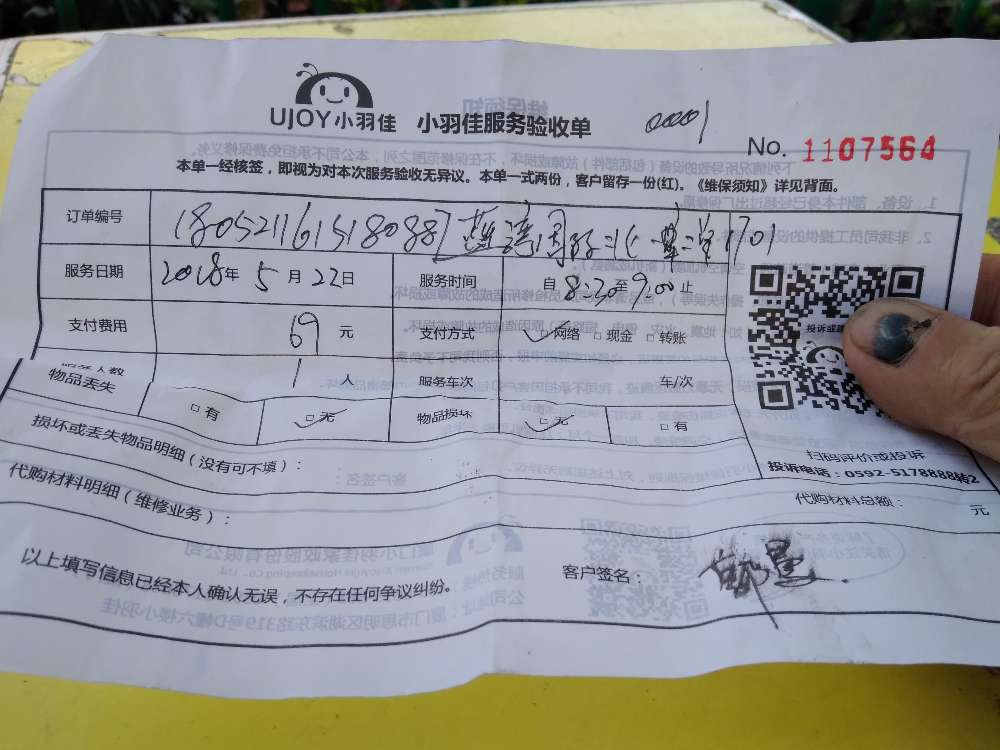 UJOY小羽佳 小羽佳服务验收单 0001
No. 1107564
本单一经核签，即视为对本次服务验收无异议。本单一式两份，客户留存一份(红)。《维保须知》详见背面。
订单编号 180521161518088 701
服务日期 2018年5月22日 服务时间 自8:30至9:00止
支付费用 69元 支付方式 □网络 □现金 □转账
人数 1人 服务车次 车/次
物品丢失 □有 □无 物品损坏 □无 □有
投诉或
损坏或丢失物品明细（没有可不填）：
扫码评价或投诉
投诉电话：0592-5178888转2
代购材料明细（维修业务）： 代购材料总额： 元
以上填写信息已经本人确认无误，不存在任何争议纠纷。 客户签名：